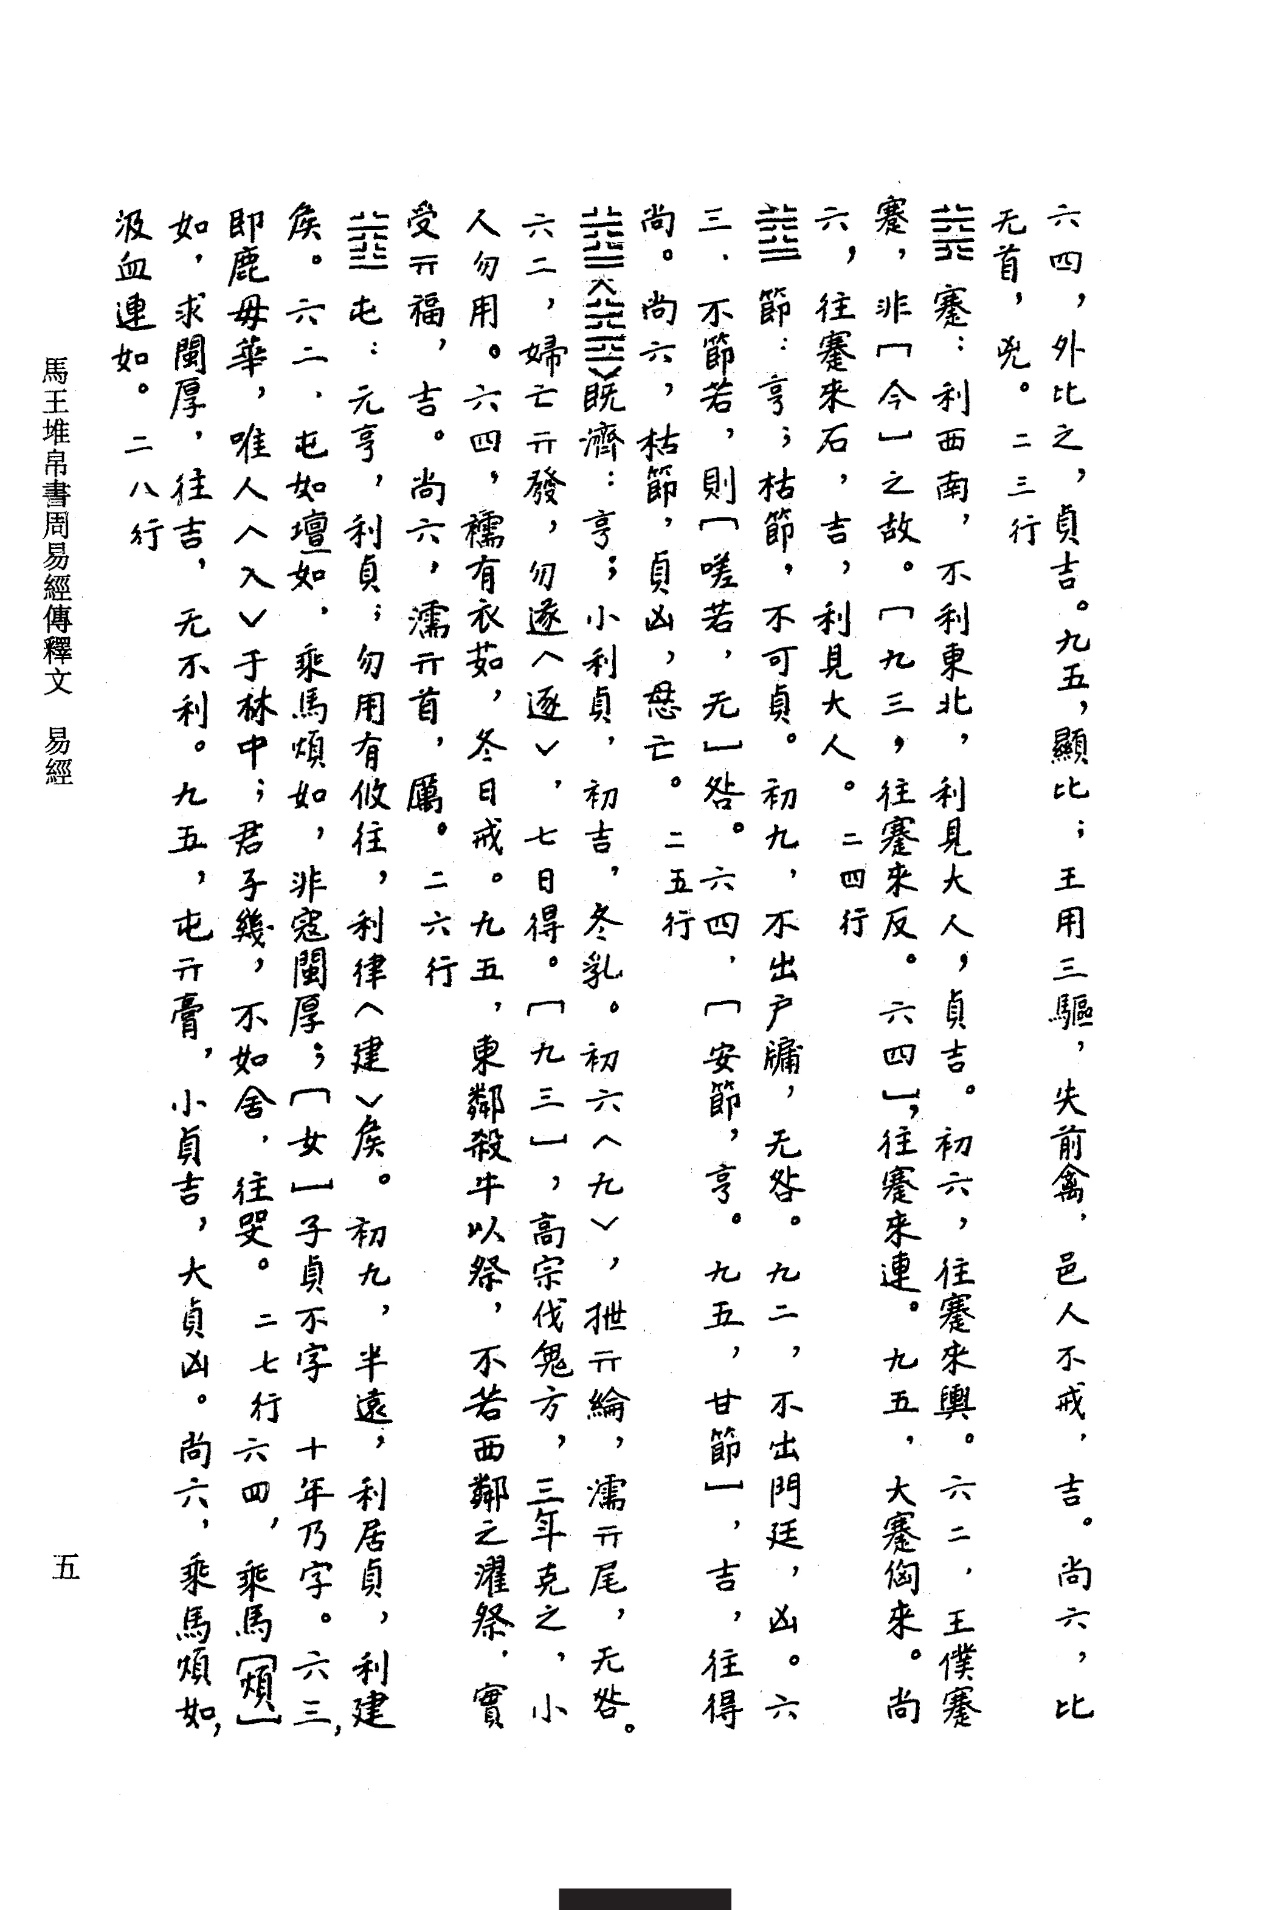 六四，外比之，貞吉。九五，顯比；王用三驅，失前禽，邑人不戒，吉。尚六，比
无首，兇。二三行
蹇：利西南，不利東北，利見大人，貞吉。初六，往蹇來輿。六二，王僕蹇
蹇，非［今］之故。［九三，往蹇來反。六四］，往蹇來連。九五，大蹇倗來。尚
六，往蹇來石，吉，利見大人。二四行
節：亨；枯節，不可貞。初九，不出户牖，无咎。九二，不出門廷，凶。六
三，不節若，則［嗟若，无］咎。六四，［安節，亨。九五，甘節］，吉，往得
尚。尚六，枯節，貞凶，悬亡。二五行
〈〉既濟：亨；小利貞，初吉，冬乳。初六〈九〉，抴亓綸，濡亓尾，无咎。
六二，婦亡亓發，勿遂〈逐〉，七日得。［九三］，高宗伐鬼方，三年克之，小
人勿用。六四，襦有衣茹，冬日戒。九五，東鄰殺牛以祭，不若西鄰之濯祭，實
受亓福，吉。尚六，濡亓首，厲。二六行
屯：元亨，利貞；勿用有攸往，利律〈建〉侯。初九，半遠，利居貞，利建
侯。六二，屯如壇如，乘馬煩如，非寇閩厚；［女］子貞不字 十年乃字。六三，
即鹿毋華，唯人〈入〉于林中；君子幾，不如舍，往哭。二七行六四，乘馬［煩］
如，求閩厚，往吉，无不利。九五，屯亓膏，小貞吉，大貞凶。尚六，乘馬煩如，
汲血連如。二八行
馬王堆帛書周易經傳釋文 易經
五